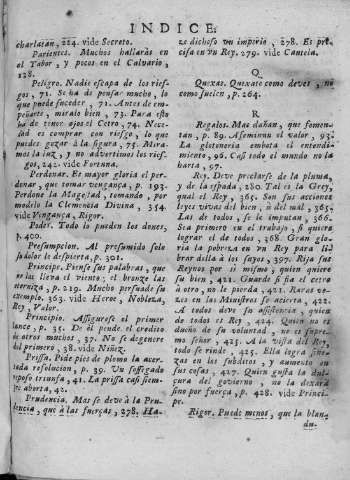 INDICE.
charlatan, 224. vide Secreto.
Parientes. Muchos hallaràs en
el Tabor, y pocos en el Calvario,
128.
Peligro. Nadie escapa de los ries-
gos, 71. Se ha de pensar mucho, lo
que puede suceder, 71. Antes de em-
peñarte, miralo bien, 73. Para esto
ha de tener ojos el Cetro, 74. Neces-
sad es comprar con riesgo, lo que
puedes gozar à la segura, 75. Mira-
mos la luz, y no advertimos los ries-
gos, 242. vide Fortuna.
Perdonar. Es mayor gloria el per-
donar, que tomar vengança, p. 193.
Perdone la Magestad, tomando, por
modelo la Clemencia Divina, 354.
vide Vengança, Rigor.
Poder. Todo lo pueden los dones,
p. 400.
Presumpcion. Al presumido solo
su dolor le despierta, p. 301.
Principe. Piense sus palabras, que
no las lleva el viento; el bronze las
eterniza, p. 219. Mucho persuade su
exemplo, 363. vide Heroe, Nobleza,
Rey, Valor.
Principio. Assigurese el primer
lance, p. 35. De èl pende el credito
de otros muchos, 37. No se degenere
del primero, 38. vide Niñez.
Prissa. Pide pies de plomo la acer-
tada resolucion, p. 39. Un sossegado
reposo triunfa, 41. La prissa casi siem-
pre aborta, 42.
Prudencia. Mas se deve à la Pru-
dencia, que à las fuerças, 278. Ha-
ze dichoso vn imperio, 278. Es pre-
cisa en vn Rey. 279. vide Cautela.
Q
Quexas. Quexate como deves, no
como suelen, p. 264.
R
Regalos. Mas dañan, que fomen-
tan, p. 89. Afeminan el valor, 93.
La glotoneria embota el entendi-
miento, 96. Casi todo el mundo no la
harta, 97.
Rey. Deve preciarse de la pluma,
y de la espada, 280. Tal es la Grey,
qual el Rey, 365. Son sus acciones
leyes vivas del bien, ò del mal, 365.
Las de todos, se le imputan, 366.
Sea primero en el trabajo, si quiere
lograr el de todos, 368. Gran glo-
ria la pobreza en vn Rey para li-
brar della à los suyos, 397. Rija sus
Reynos por si mismo, quien quiere
su bien, 421. Guarde si fia el cetro
à otro, no le pierda, 421. Raras ve-
zes en los Ministros se acierta, 422.
A todos deve su assistencia, quien
de todos es Rey, 424. Quien no es
dueño de su voluntad, no es supre-
mo señor, 425. A la vista del Rey,
todo se rinde, 425. Ella logra fine-
zas en los subditos, y aumento en
sus cosas, 427. Quien gusta la dul-
çura del govierno, no la dexarà
sino por fuerça, p. 428. vide Princi-
pe.
Rigor. Puede menos, que la blan-
du-